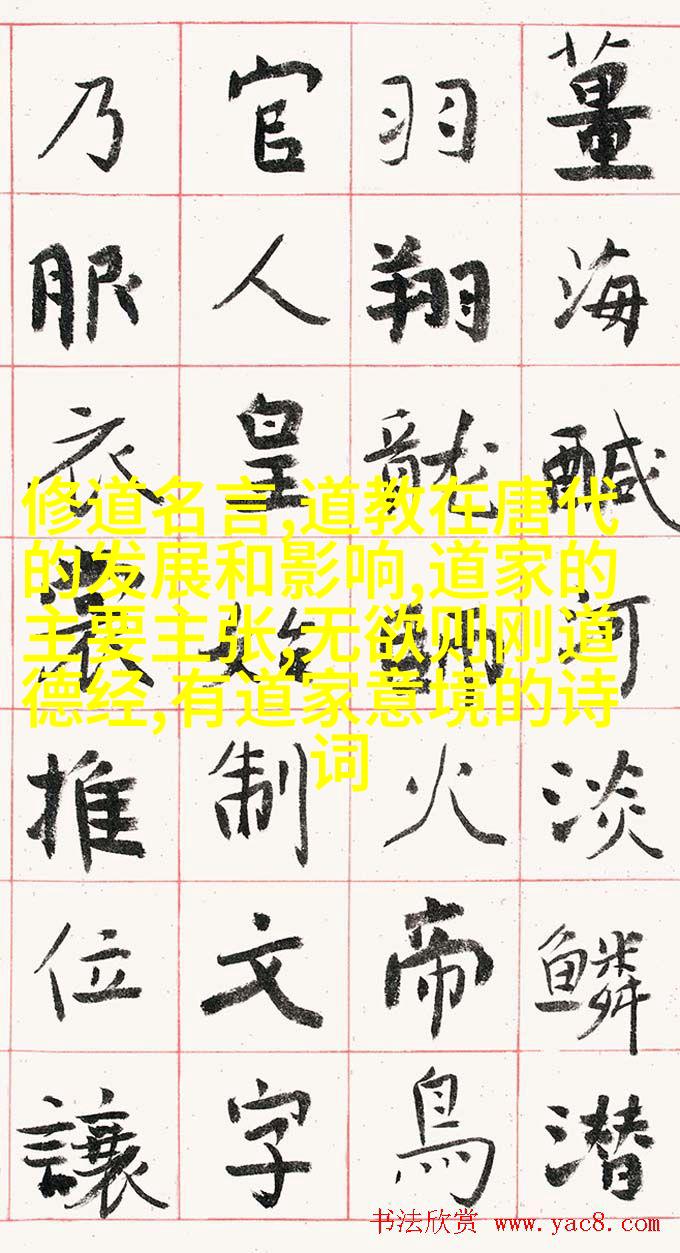 薑海醎河淡鱗潜
羽翔龍師火帝鳥
官人皇始制文字
乃服衣裳推位讓
修道名言,道教在唐代
的发展和影响,道家的
主要主张,无欲则刚道
德经,有道家意境的诗
词
书法欣赏 www.yac8.com